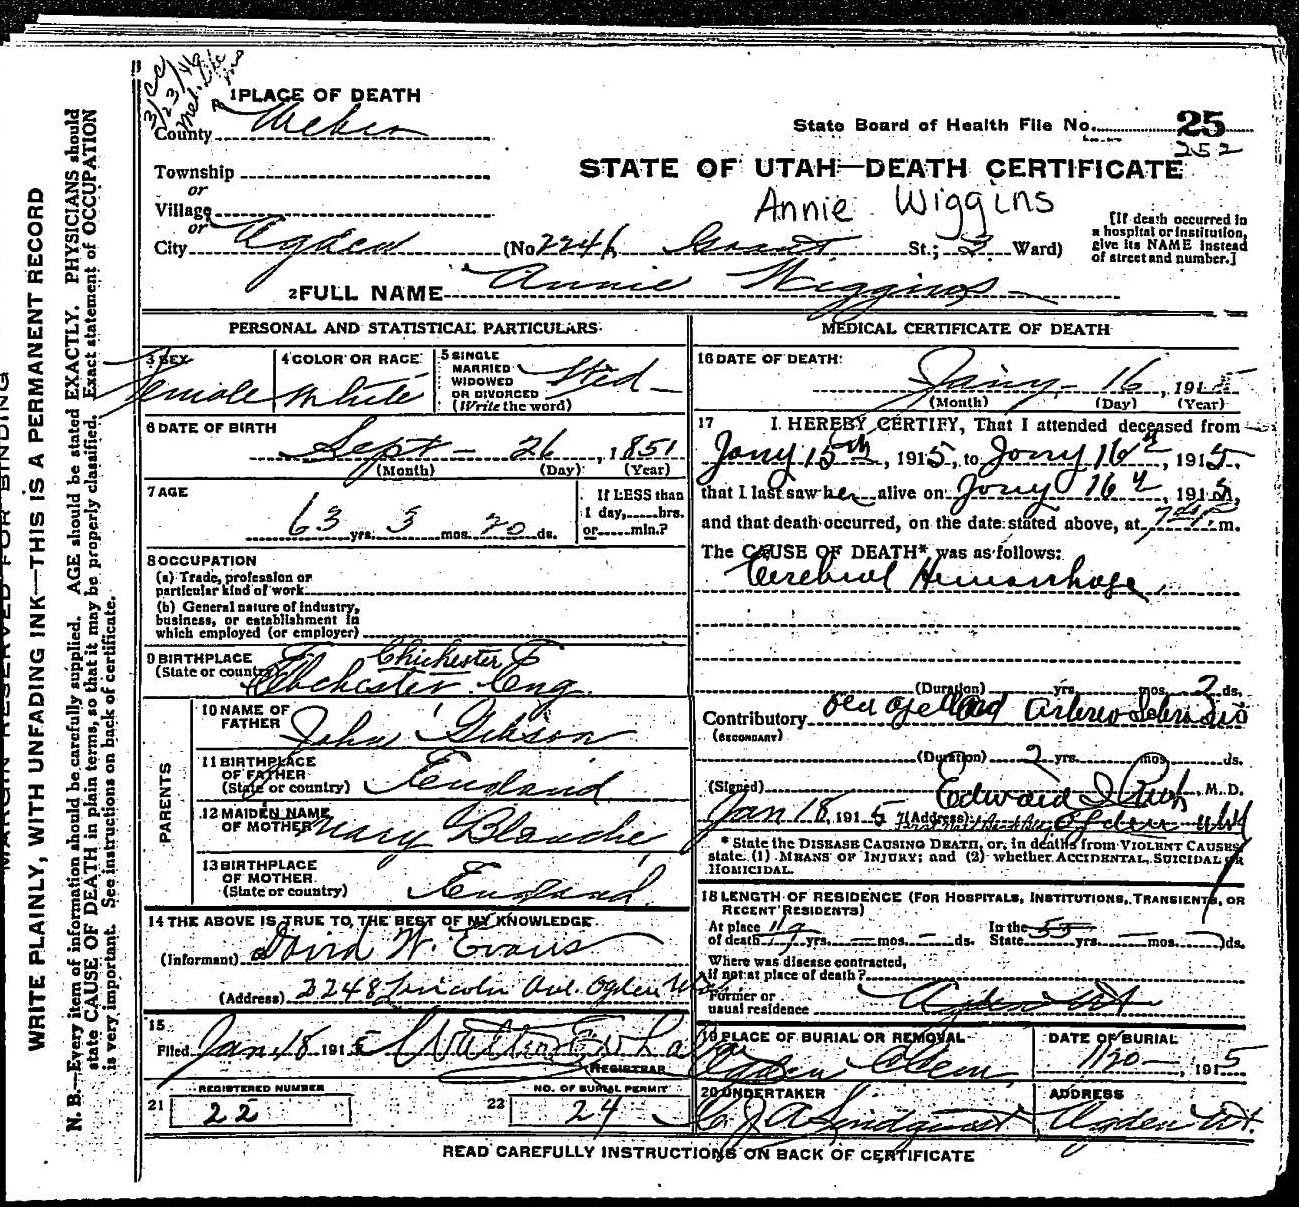 3/23/49
1 PLACE OF DEATH
County Weber
State Board of Health File No. 25
252
STATE OF UTAH—DEATH CERTIFICATE
Annie Wiggins
Township
or
Village
or
City Ogden (No 2246 Grant St.; 3 Ward)
[If death occurred in
a hospital or institution,
give its NAME instead
of street and number.]
2 FULL NAME Annie Wiggins
PERSONAL AND STATISTICAL PARTICULARS
3 SEX
Female
4 COLOR OR RACE
White
5 SINGLE
MARRIED
WIDOWED
OR DIVORCED
(Write the word)
6 DATE OF BIRTH
Sept 26, 1851
(Month) (Day) (Year)
7 AGE
63 yrs. 3 mos. 20 ds.
If LESS than
1 day, hrs.
or min.?
8 OCCUPATION
(a) Trade, profession or
particular kind of work
(b) General nature of industry,
business, or establishment in
which employed (or employer)
9 BIRTHPLACE
(State or country)
Chichester
Chichester Eng.
PARENTS
10 NAME OF
FATHER
John Gibson
11 BIRTHPLACE
OF FATHER
(State or country) England
12 MAIDEN NAME
OF MOTHER Mary Blanche
13 BIRTHPLACE
OF MOTHER
(State or country) England
14 THE ABOVE IS TRUE TO THE BEST OF MY KNOWLEDGE
(Informant) David W. Evans
(Address) 2248 Lincoln Ave. Ogden
15
Filed Jan. 18 1915
REGISTRAR
REGISTERED NUMBER
21 22
NO. OF BURIAL PERMIT
22 24
MEDICAL CERTIFICATE OF DEATH
16 DATE OF DEATH:
Jany. 16, 1915
(Month) (Day) (Year)
17 I HEREBY CERTIFY, That I attended deceased from
Jany 15th, 1915, to Jany 16th, 1915,
that I last saw her alive on Jany 16th, 1915,
and that death occurred, on the date stated above, at 7 m.
The CAUSE OF DEATH* was as follows:
Cerebral Hemorrhage
(Duration) yrs. mos. 2 ds.
Contributory old age and
(SECONDARY)
(Duration) 2 yrs. mos. ds.
(Signed) Edward I Rich, M. D.
Jan 18, 1915 (Address) Ogden Utah
* State the DISEASE CAUSING DEATH, or, in deaths from VIOLENT CAUSES,
state (1) MEANS OF INJURY; and (2) whether ACCIDENTAL, SUICIDAL OR
HOMICIDAL.
18 LENGTH OF RESIDENCE (FOR HOSPITALS, INSTITUTIONS, TRANSIENTS, OR
RECENT RESIDENTS)
At place
of death yrs. mos. ds.
In the
State 55 yrs. mos. ds.
Where was disease contracted,
if not at place of death?
Former or
usual residence Ogden Ut
19 PLACE OF BURIAL OR REMOVAL
Ogden Cem.
DATE OF BURIAL
1/20, 1915
20 UNDERTAKER
J A Lindquist
ADDRESS
Ogden Ut.
READ CAREFULLY INSTRUCTIONS ON BACK OF CERTIFICATE
MARGIN RESERVED FOR BINDING
WRITE PLAINLY, WITH UNFADING INK—THIS IS A PERMANENT RECORD
N. B.—Every item of information should be carefully supplied. AGE should be stated EXACTLY. PHYSICIANS should
state CAUSE OF DEATH in plain terms, so that it may be properly classified. Exact statement of OCCUPATION
is very important. See instructions on back of certificate.